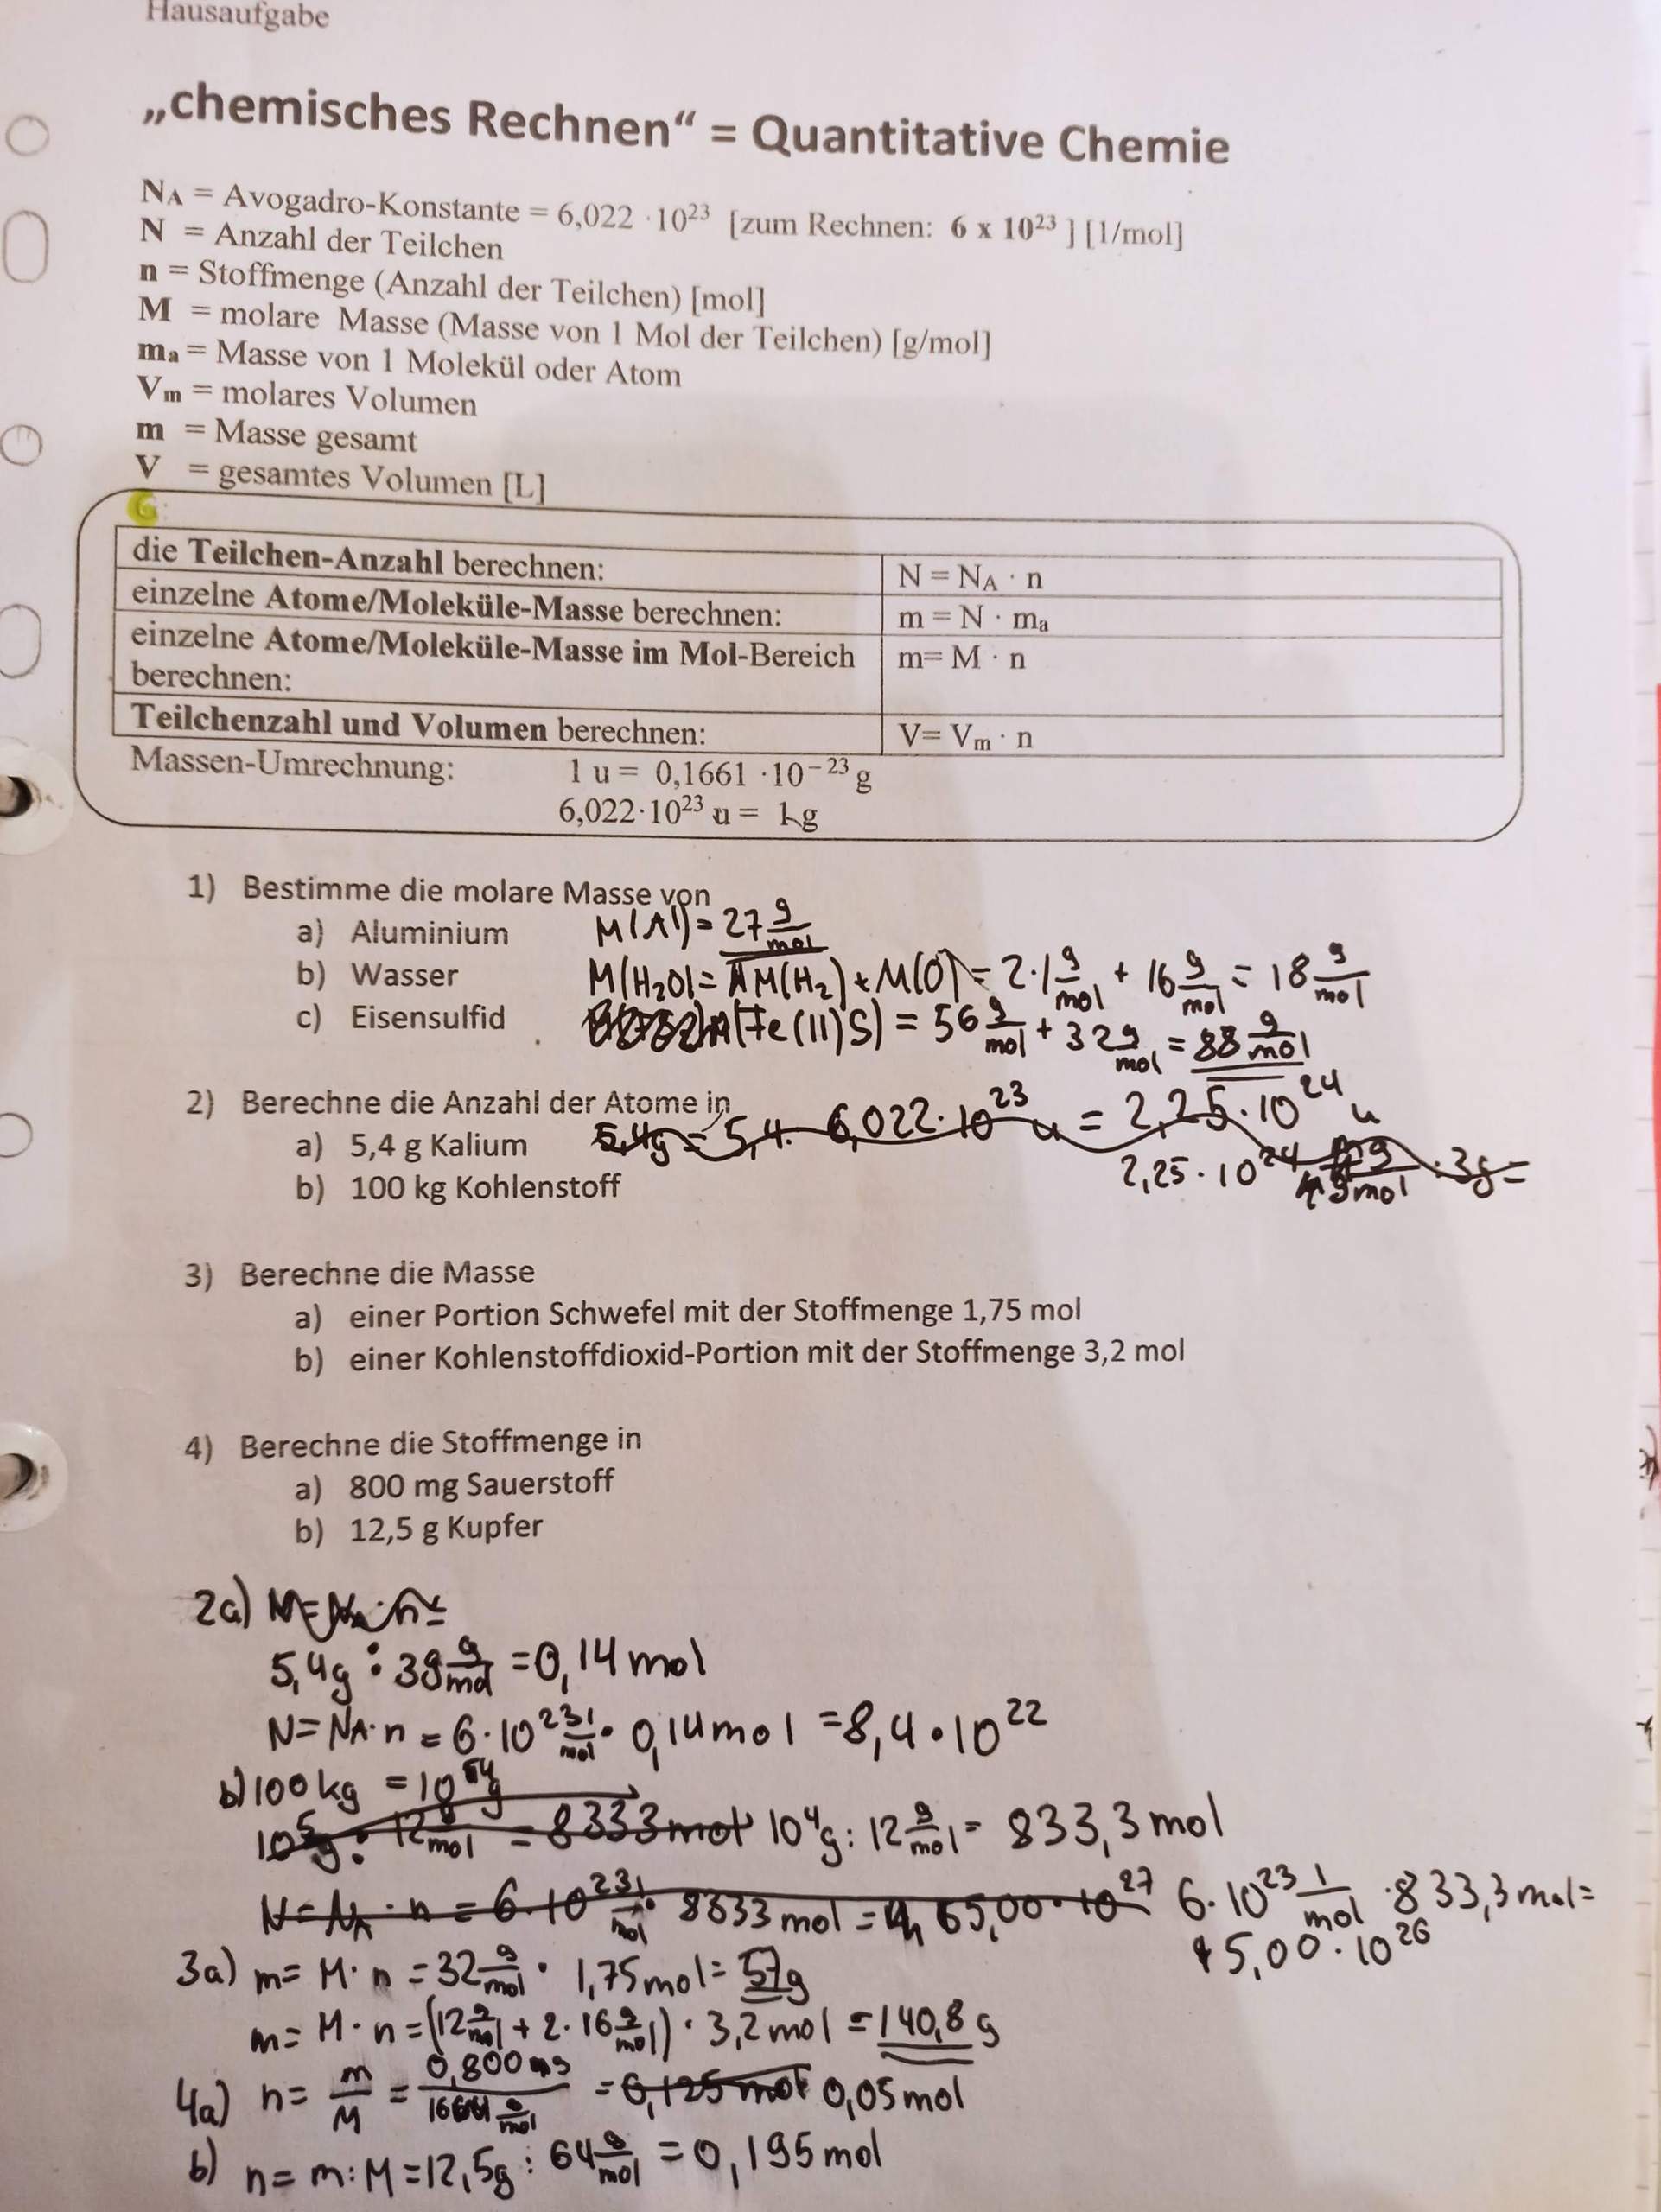 Hausaufgabe
„chemisches Rechnen“ = Quantitative Chemie
NA = Avogadro-Konstante = 6,022 · 10²³ [zum Rechnen: 6 x 10²³ ] [1/mol]
N = Anzahl der Teilchen
n = Stoffmenge (Anzahl der Teilchen) [mol]
M = molare Masse (Masse von 1 Mol der Teilchen) [g/mol]
ma = Masse von 1 Molekül oder Atom
Vm = molares Volumen
m = Masse gesamt
V = gesamtes Volumen [L]
G:
die Teilchen-Anzahl berechnen: N = NA · n
einzelne Atome/Moleküle-Masse berechnen: m = N · ma
einzelne Atome/Moleküle-Masse im Mol-Bereich m= M · n
berechnen:
Teilchenzahl und Volumen berechnen: V= Vm · n
Massen-Umrechnung: 1 u = 0,1661 ·10⁻²³ g
6,022·10²³ u = 1 g
1) Bestimme die molare Masse von
a) Aluminium M(Al) = 27 g/mol
b) Wasser M(H₂O) = M(H₂) + M(O) = 2·1 g/mol + 16 g/mol = 18 g/mol
c) Eisensulfid (Fe(II)S) = 56 g/mol + 32 g/mol = 88 g/mol
2) Berechne die Anzahl der Atome in
a) 5,4 g Kalium 5,4g = 5,4 · 6,022·10²³ u = 2,25·10²⁴ u
b) 100 kg Kohlenstoff 2,25·10²⁴ · 3g =
3) Berechne die Masse
a) einer Portion Schwefel mit der Stoffmenge 1,75 mol
b) einer Kohlenstoffdioxid-Portion mit der Stoffmenge 3,2 mol
4) Berechne die Stoffmenge in
a) 800 mg Sauerstoff
b) 12,5 g Kupfer
2a) N = NA · n =
5,4g : 39 g/mol = 0,14 mol
N = NA · n = 6·10²³ 1/mol · 0,14 mol = 8,4·10²²
b) 100 kg = 10⁴ g
10⁵ g : 12 g/mol = 8333 mol 10⁴g : 12 g/mol = 833,3 mol
N = NA · n = 6·10²³ 1/mol · 8333 mol = 5,00·10²⁷ 6·10²³ 1/mol · 833,3 mol =
5,00·10²⁶
3a) m = M · n = 32 g/mol · 1,75 mol = 57g
m = M · n = (12 g/mol + 2·16 g/mol) · 3,2 mol = 140,8 g
4a) n = m/M = 0,800 g / 16 g/mol = 0,125 mol 0,05 mol
b) n = m : M = 12,5g : 64 g/mol = 0,195 mol